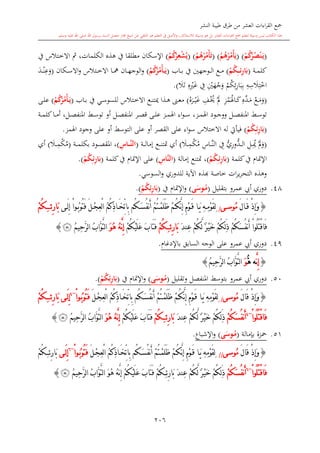 جمع القراءات العشر من طرق طيبة النشر
(يَنصُرْكُمُ) و(يَأْمُرْهُمْ) و(تَأْمُرُهُمْ) و(يُشْعِرُكُمْ) الإسكان مطلقا في هذه الكلمات، ثم الاختلاس في
كلمة (بَارِئِكُمْ) مع الوجهين في باب (يَأْمُرُكُمْ) والوجهان هما الاختلاس والإسكان
على (يَأْمُرُكُمْ) معنى هذا يمتنع الاختلاس للسوسي في باب
توسط المنفصل ووجود الهمز، سواء الهمز على قصر المنفصل أو توسط المنفصل، أما كلمة
(بَارِئِكُمْ) فيأتي له الاختلاس سواء على القصر أو على التوسط أو على وجود الهمز.
أي تمتنع إمالة (النَّاسِ)، المقصود بكلمة (يَأْمُرُكُمْ) أي
الإتمام في كلمة (بَارِئِكُمْ)، تمتنع إمالة (النَّاسِ) على الإتمام في كلمة (بَارِئِكُمْ).
وهذه التحريرات خاصة بهذه الآية للدوري والسوسي.
٤٨. دوري أبي عمرو بتقليل (مُوسَى) والإتمام في (بَارِئِكُمْ).
﴿ وَإِذْ قَالَ مُوسَى لِقَوْمِهِ يَا قَوْمِ إِنَّكُمْ ظَلَمْتُمْ أَنفُسَكُم بِاتِّخَاذِكُمُ الْعِجْلَ فَتُوبُوا إِلَى بَارِئِكُمْ
فَاقْتُلُوا أَنفُسَكُمْ ذَٰلِكُمْ خَيْرٌ لَّكُمْ عِندَ بَارِئِكُمْ فَتَابَ عَلَيْكُمْ إِنَّهُ هُوَ التَّوَّابُ الرَّحِيمُ ﴾
٤٩. دوري أبي عمرو على الوجه السابق بالإدغام.
﴿ إِنَّهُ هُوَ التَّوَّابُ الرَّحِيمُ ﴾
٥٠. دوري أبي عمرو بتوسط المنفصل وتقليل (مُوسَى) والإتمام في (بَارِئِكُمْ).
﴿ وَإِذْ قَالَ مُوسَى لِقَوْمِهِ يَا قَوْمِ إِنَّكُمْ ظَلَمْتُمْ أَنفُسَكُم بِاتِّخَاذِكُمُ الْعِجْلَ فَتُوبُوا إِلَى بَارِئِكُمْ
فَاقْتُلُوا أَنفُسَكُمْ ذَٰلِكُمْ خَيْرٌ لَّكُمْ عِندَ بَارِئِكُمْ فَتَابَ عَلَيْكُمْ إِنَّهُ هُوَ التَّوَّابُ الرَّحِيمُ ﴾
٥١. حمزة بإمالة (مُوسَى) والإشباع.
﴿ وَإِذْ قَالَ مُوسَى لِقَوْمِهِ يَا قَوْمِ إِنَّكُمْ ظَلَمْتُمْ أَنفُسَكُم بِاتِّخَاذِكُمُ الْعِجْلَ فَتُوبُوا إِلَى بَارِئِكُمْ
فَاقْتُلُوا أَنفُسَكُمْ ذَٰلِكُمْ خَيْرٌ لَّكُمْ عِندَ بَارِئِكُمْ فَتَابَ عَلَيْكُمْ إِنَّهُ هُوَ التَّوَّابُ الرَّحِيمُ ﴾
٢٠٦